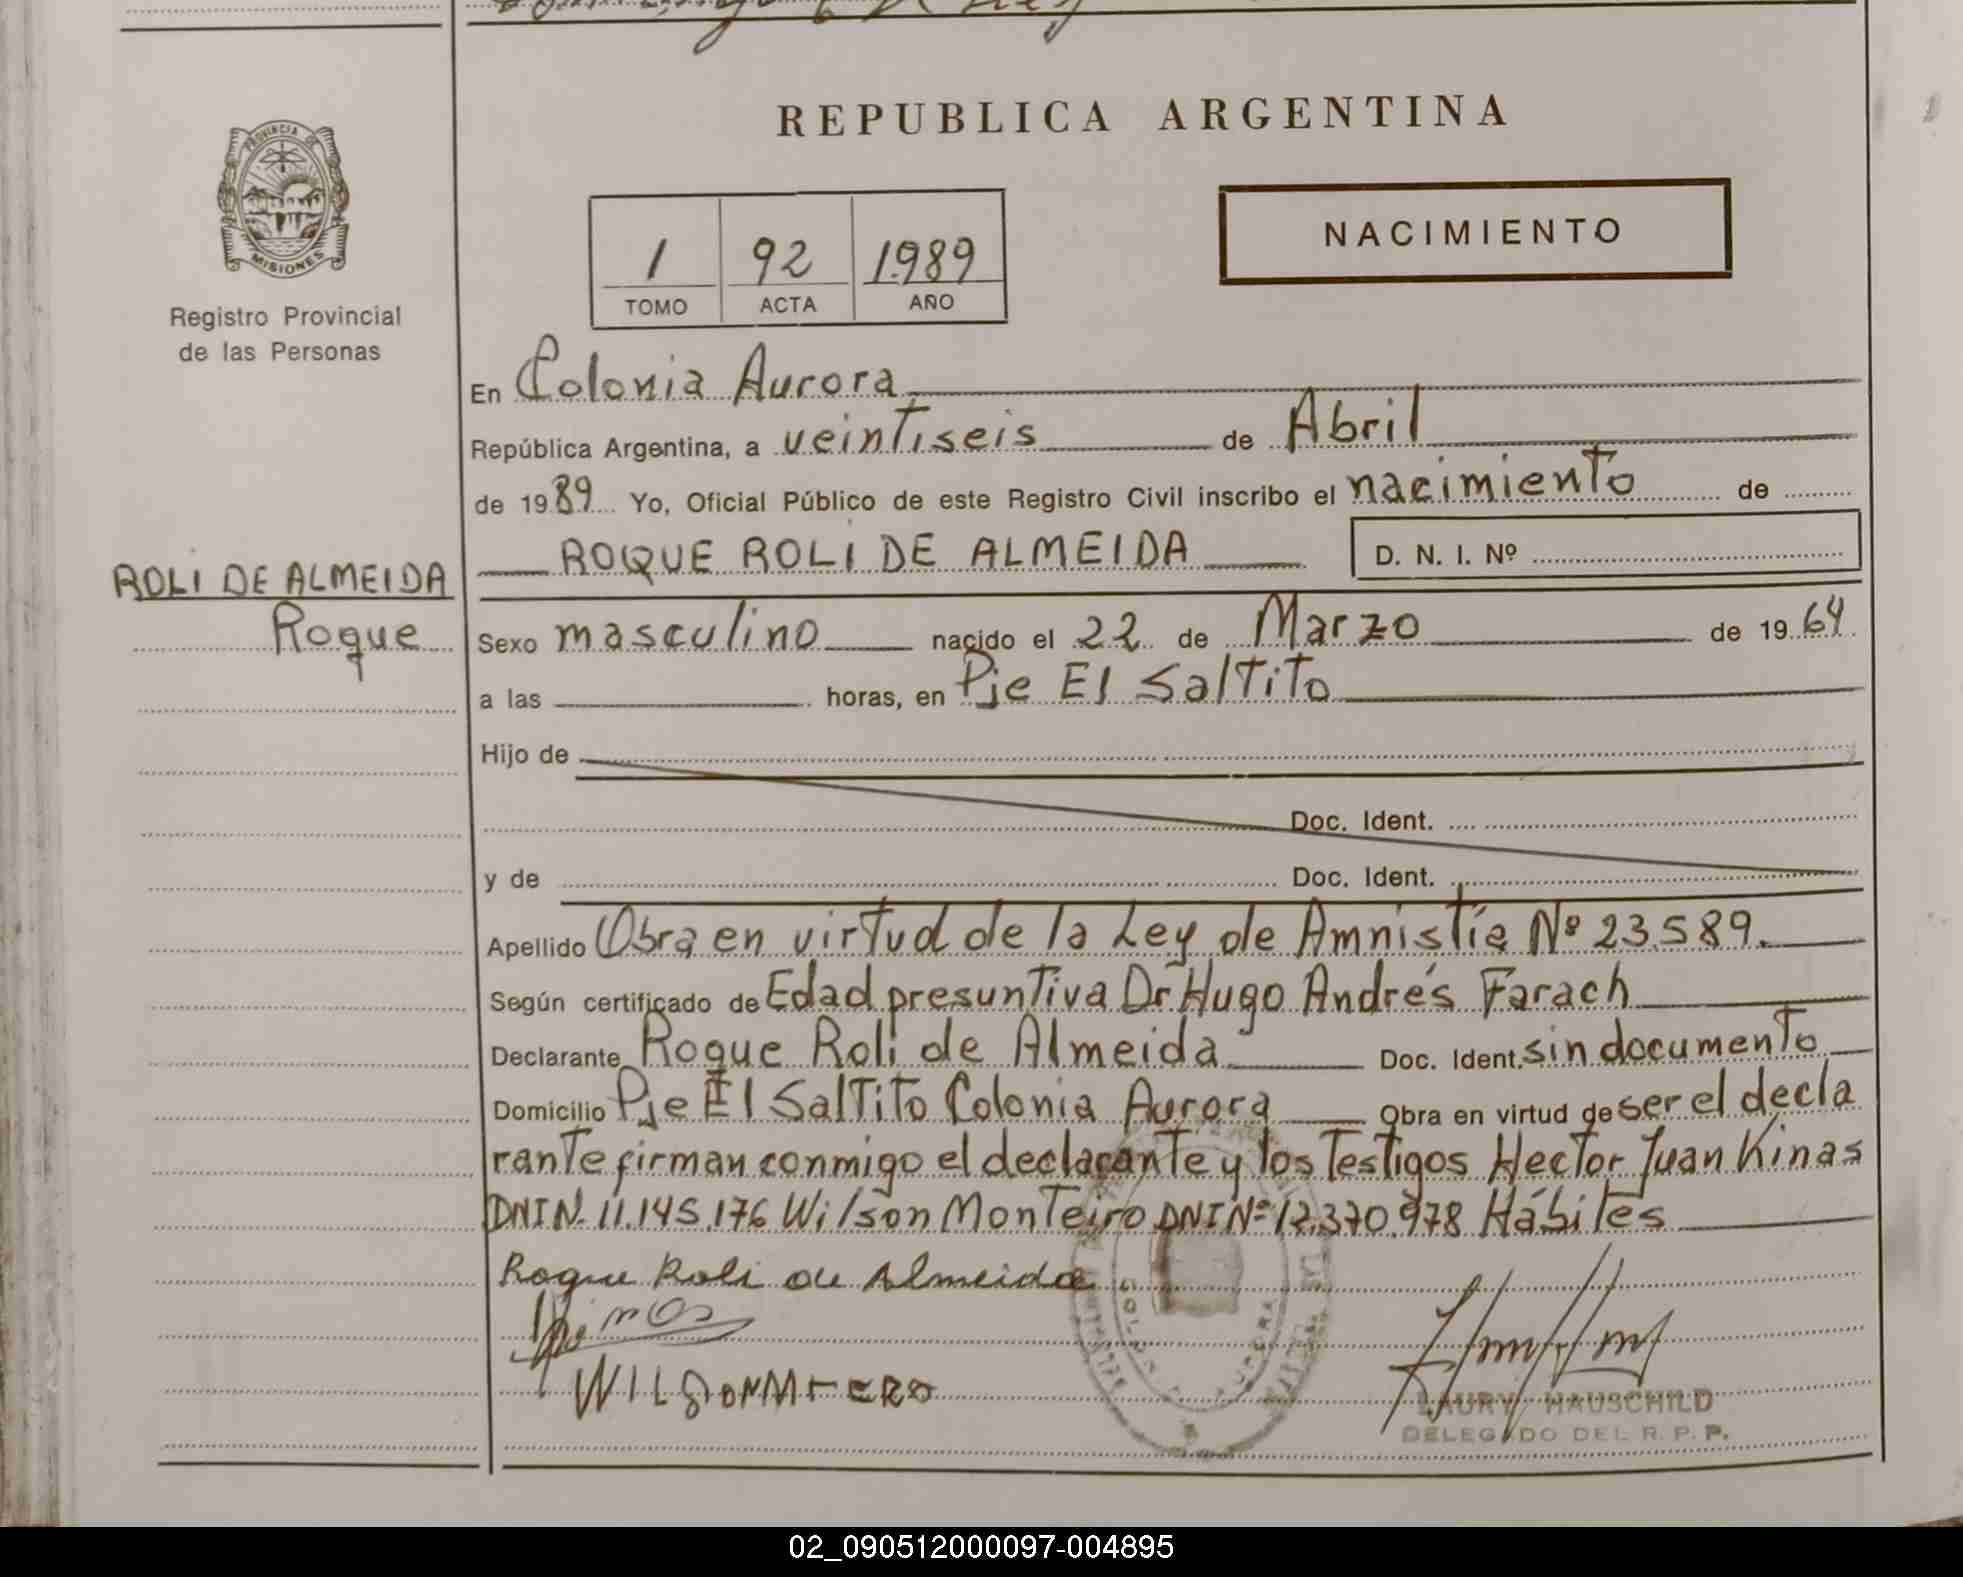 REPUBLICA ARGENTINA
PROVINCIA DE
MISIONES
Registro Provincial
de las Personas
NACIMIENTO
1 92 1989
TOMO ACTA AÑO
En Colonia Aurora
República Argentina, a veintiseis de Abril
de 1989 Yo, Oficial Público de este Registro Civil inscribo el nacimiento de
ROQUE ROLI DE ALMEIDA D. N. I. Nº
ROLI DE ALMEIDA
Roque
Sexo masculino nacido el 22 de Marzo de 1964
a las horas, en Pje El Saltito
Hijo de
Doc. Ident.
y de Doc. Ident.
Apellido Obra en virtud de la Ley de Amnistía Nº 23.589.
Según certificado de Edad presuntiva Dr Hugo Andrés Farach
Declarante Roque Roli de Almeida Doc. Ident. sin documento
Domicilio Pje El Saltito Colonia Aurora Obra en virtud de ser el decla
rante firman conmigo el declarante y los Testigos Hector Juan Kinas
DNI N- 11.145.176 Wilson Monteiro DNI Nº 12.370.978 Hábiles
Roque Roli de Almeida
LAURY HAUSCHILD
DELEGADO DEL R. P. P.
02_090512000097-004895